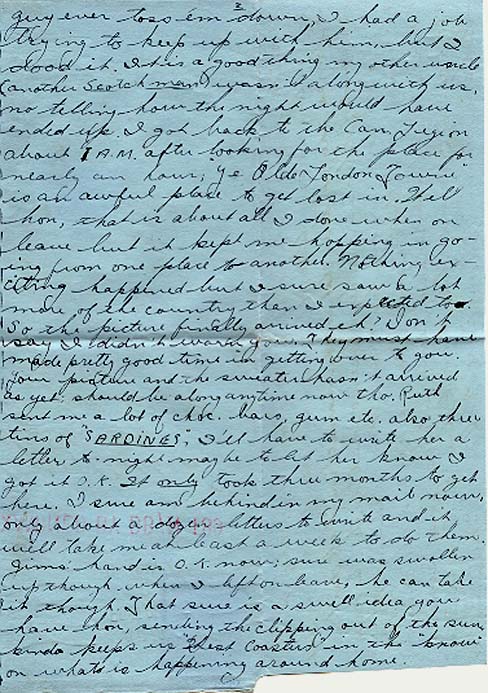 2
guy ever toss 'em down, I had a job
trying to keep up with him, but I
dood it. It is a good thing my other uncle
(another Scotchman) wasn't along with us,
no telling how the night would have
ended up. I got back to the Can. Legion
about 1 A.M. after looking for the place for
nearly an hour, "Ye Olde London Towne"
is an awful place to get lost in. Well
hon, that is about all I done when on
leave but it kept me hopping in go-
ing from one place to another. Nothing ex-
citing happened but I sure saw a lot
more of the country than I expected to.
So the picture finally arrived eh? Don't
say I didn't warn you. They must have
made pretty good time in getting over to you.
Your picture and the sweater hasn't arrived
as yet. should be along anytime now tho. Ruth
sent me a lot of choc. bars, gum etc. also three
tins of "SARDINES"; I'll have to write her a
letter to-night maybe to let her know I
got it O.K. It only took three months to get
here. I sure am behind in my mail now,
only about a doz. letters to write and it
will take me at least a week to do them.
Jim's hand is O.K. now; sure was swollen
up though when I left on leave, he can take
it though. That sure is a swell idea you
have hon, sending the clipping out of the sun,
kinda keeps us "West Coasters" in the "know"
on whats is happening around home.